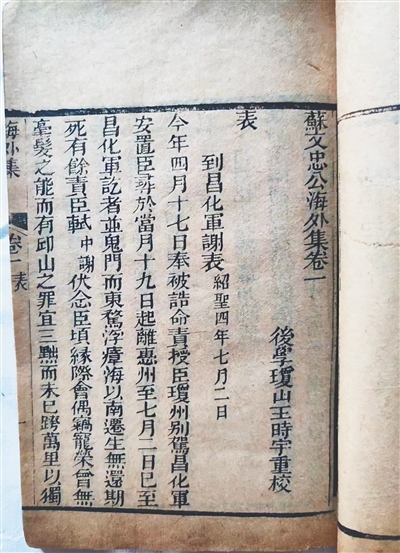 蘇文忠公海外集卷一
後學瓊山王時宇重校
表
到昌化軍謝表 紹聖四年七月二日
今年四月十七日奉被誥命責授臣瓊州別駕昌化軍
安置臣尋於當月十九日起離惠州至七月二日已至
昌化軍訖者並鬼門而東騖浮瘴海以南遷生無還期
死有餘責臣軾 中謝 伏念臣頃緣際會偶竊寵榮曾無
毫髮之能而有邱山之罪宜三黜而未已跨萬里以獨
海外集 卷一 表